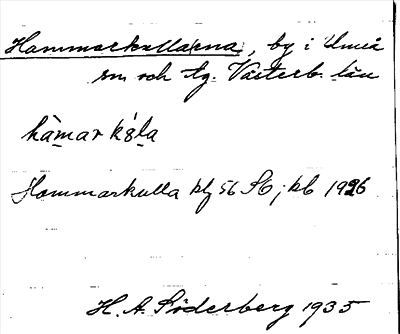 Hammarkullarna, by i Umeå
sn och tg. Västerb. län
hàmar kš̀la
Hammarkulla blz 56 SC; kb 1926
H. A. Söderberg 1935